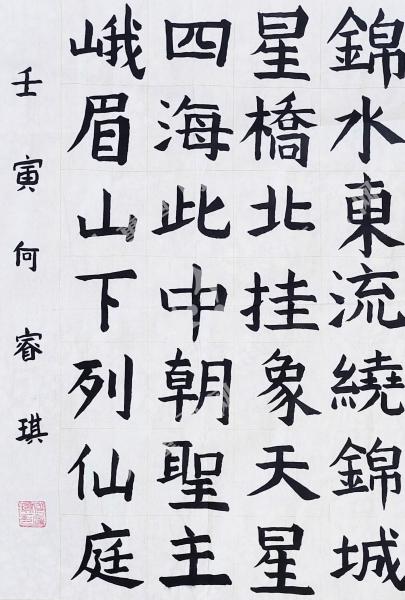 錦水東流繞錦城
星橋北挂象天星
四海此中朝聖主
峨眉山下列仙庭
壬寅何睿琪